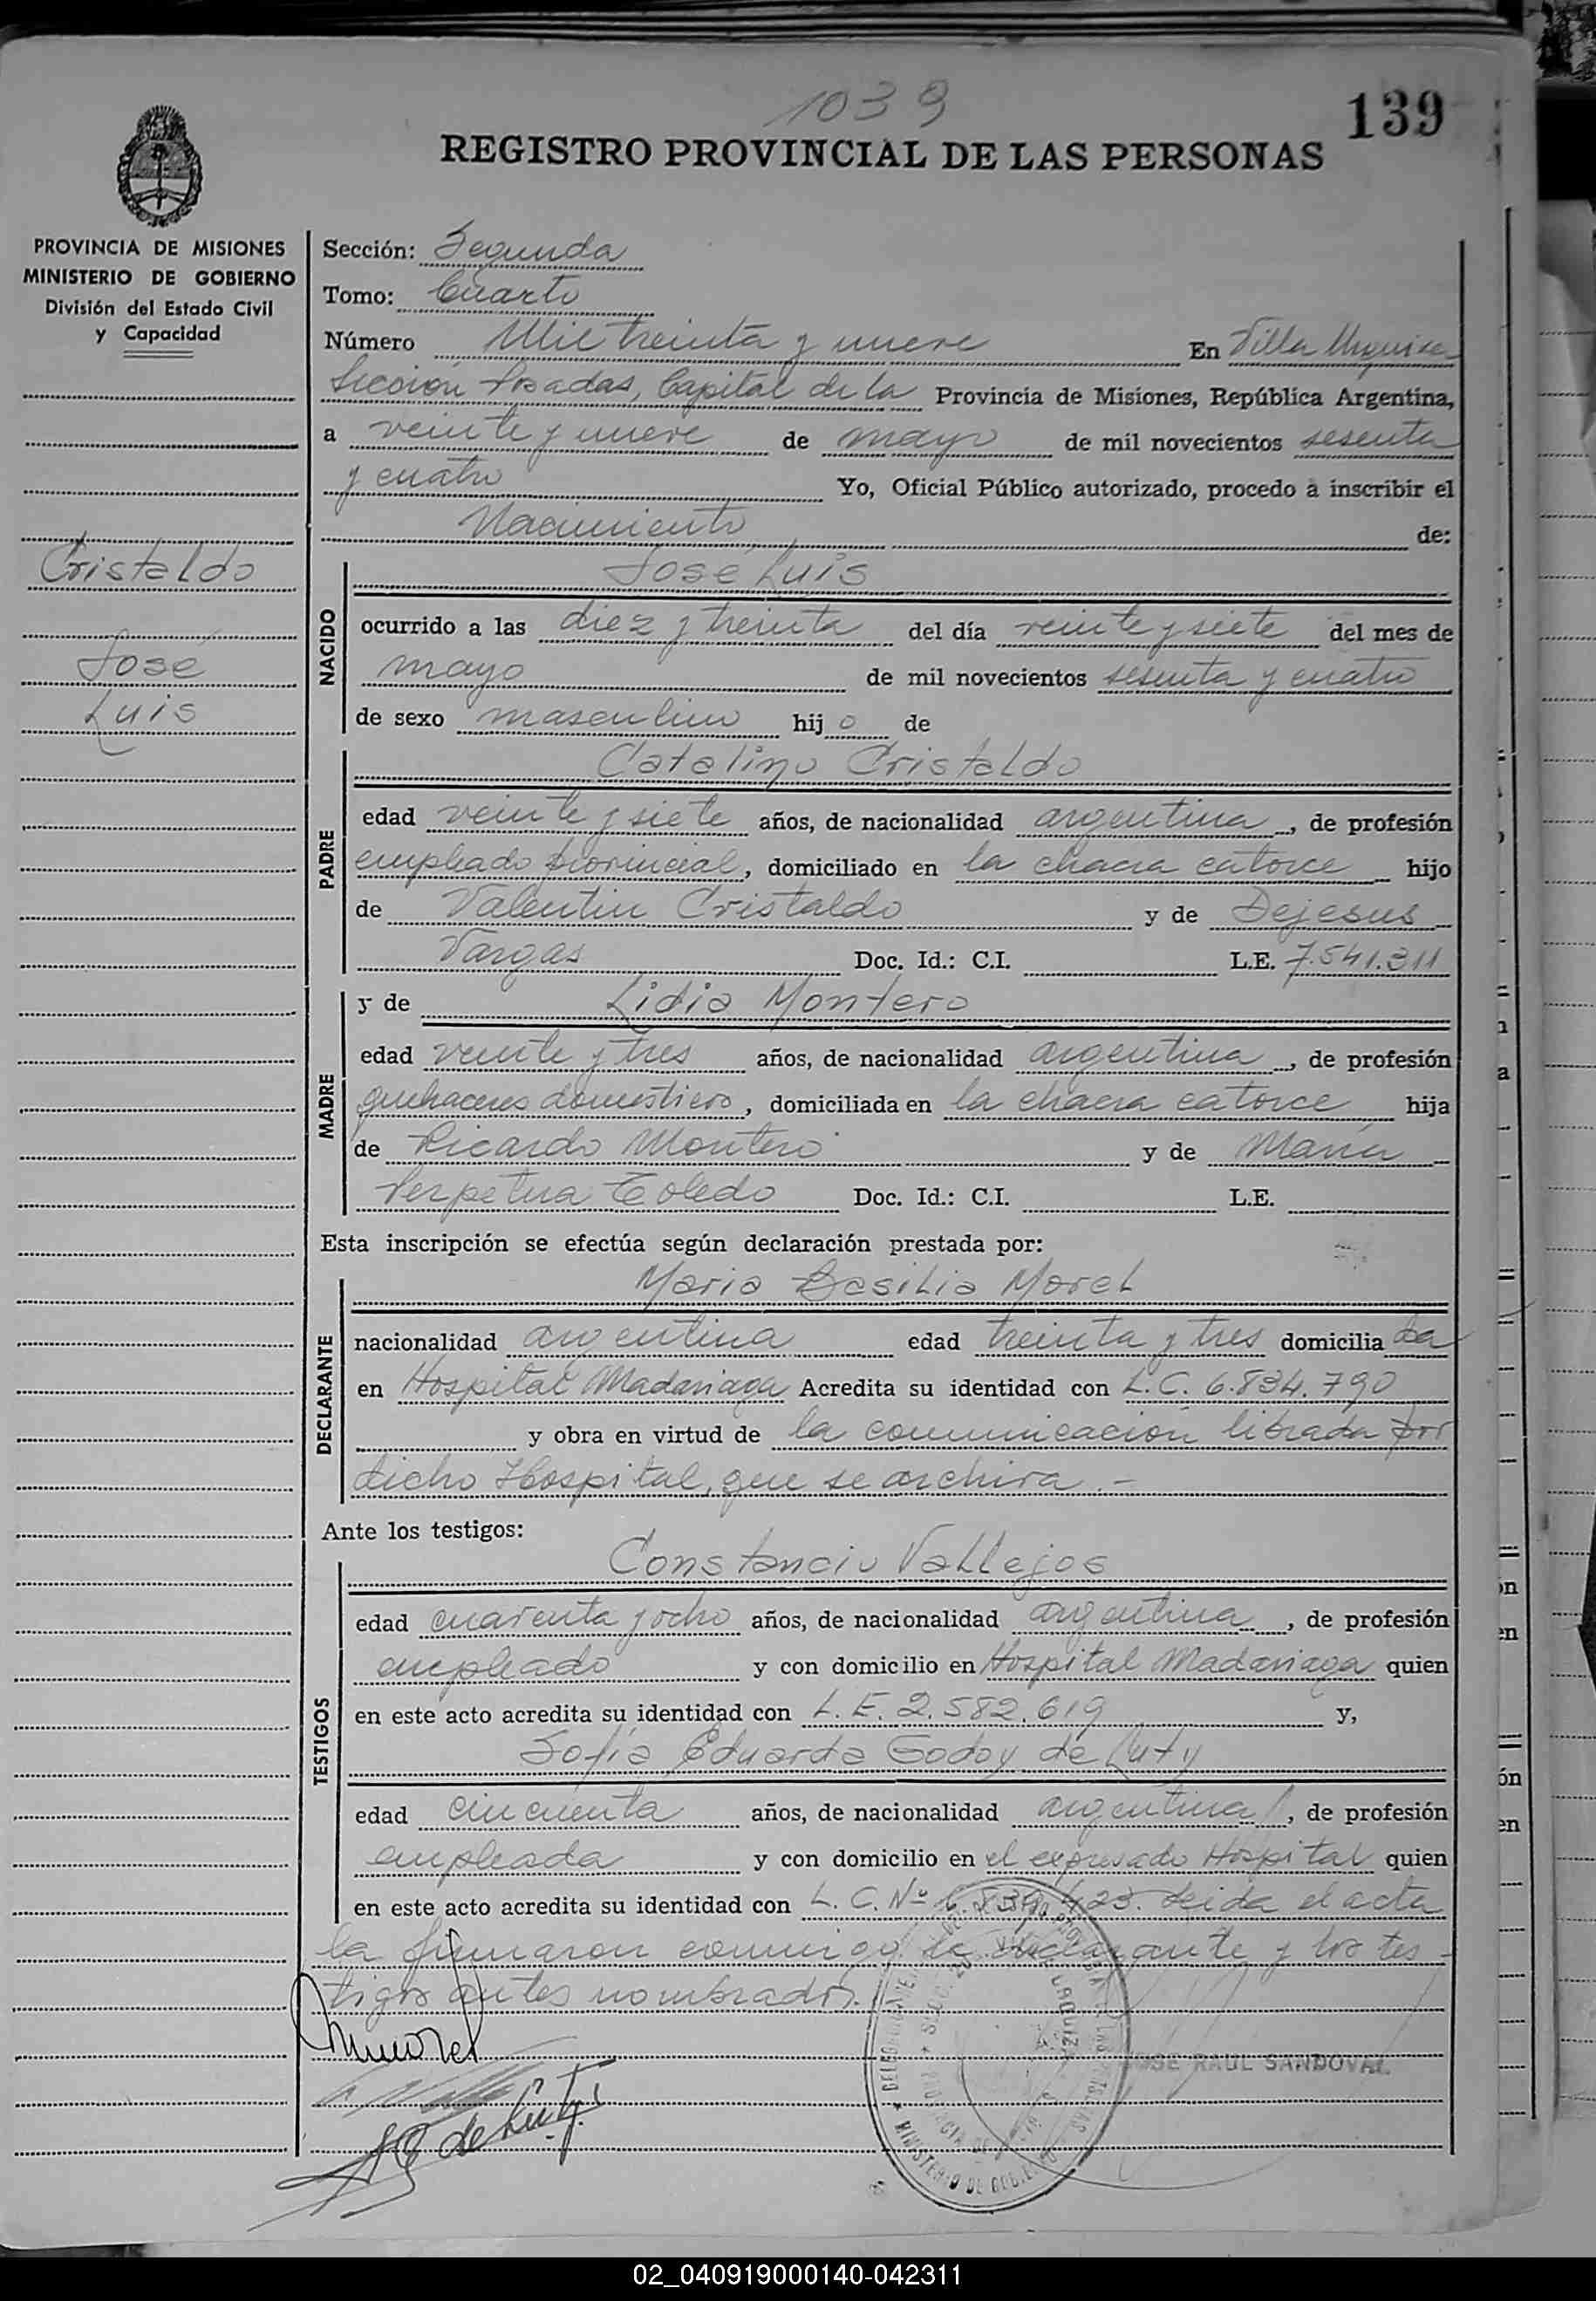 1039
139
REGISTRO PROVINCIAL DE LAS PERSONAS
PROVINCIA DE MISIONES
MINISTERIO DE GOBIERNO
División del Estado Civil
y Capacidad
Cristaldo
José
Luis
Sección: Segunda
Tomo: Cuarto
Número Mil treinta y nueve En Villa Urquiza
Sección Posadas, Capital de la Provincia de Misiones, República Argentina,
a veinte y nueve de mayo de mil novecientos sesenta
y cuatro Yo, Oficial Público autorizado, procedo a inscribir el
Nacimiento de:
NACIDO
José Luis
ocurrido a las diez y treinta del día veinte y siete del mes de
mayo de mil novecientos sesenta y cuatro
de sexo masculino hijo de
PADRE
Catalino Cristaldo
edad veinte y siete años, de nacionalidad argentina, de profesión
empleado provincial, domiciliado en la chacra catorce hijo
de Valentin Cristaldo y de Dejesus
Vargas Doc. Id.: C.I. L.E. 7.541.311
MADRE
y de Lidia Montero
edad veinte y tres años, de nacionalidad argentina, de profesión
quehaceres domésticos, domiciliada en la chacra catorce hija
de Ricardo Montero y de María
Perpetua Toledo Doc. Id.: C.I. L.E.
Esta inscripción se efectúa según declaración prestada por:
DECLARANTE
Maria Basilia Morel
nacionalidad argentina edad treinta y tres domicilia da
en Hospital Madariaga Acredita su identidad con L.C. 6.834.790
y obra en virtud de la comunicación librada por
dicho Hospital, que se archiva.-
Ante los testigos:
TESTIGOS
Constancio Vallejos
edad cuarenta y ocho años, de nacionalidad argentina, de profesión
empleado y con domicilio en Hospital Madariaga quien
en este acto acredita su identidad con L.E. 2.582.619 y,
Sofía Eduarda Godoy de Luty
edad cincuenta años, de nacionalidad argentina, de profesión
empleada y con domicilio en el expresado Hospital quien
en este acto acredita su identidad con L.C. Nº 423. Leida el acta
la firmaron conmigo la declarante y los tes-
tigos antes nombrados.
JOSE RAUL SANDOVAL
MINISTERIO DE
02_040919000140-042311